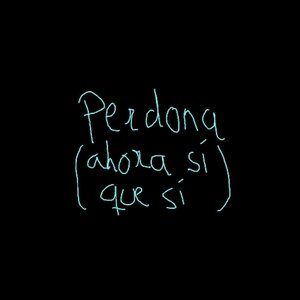 Perdona
(ahora sí
que sí)